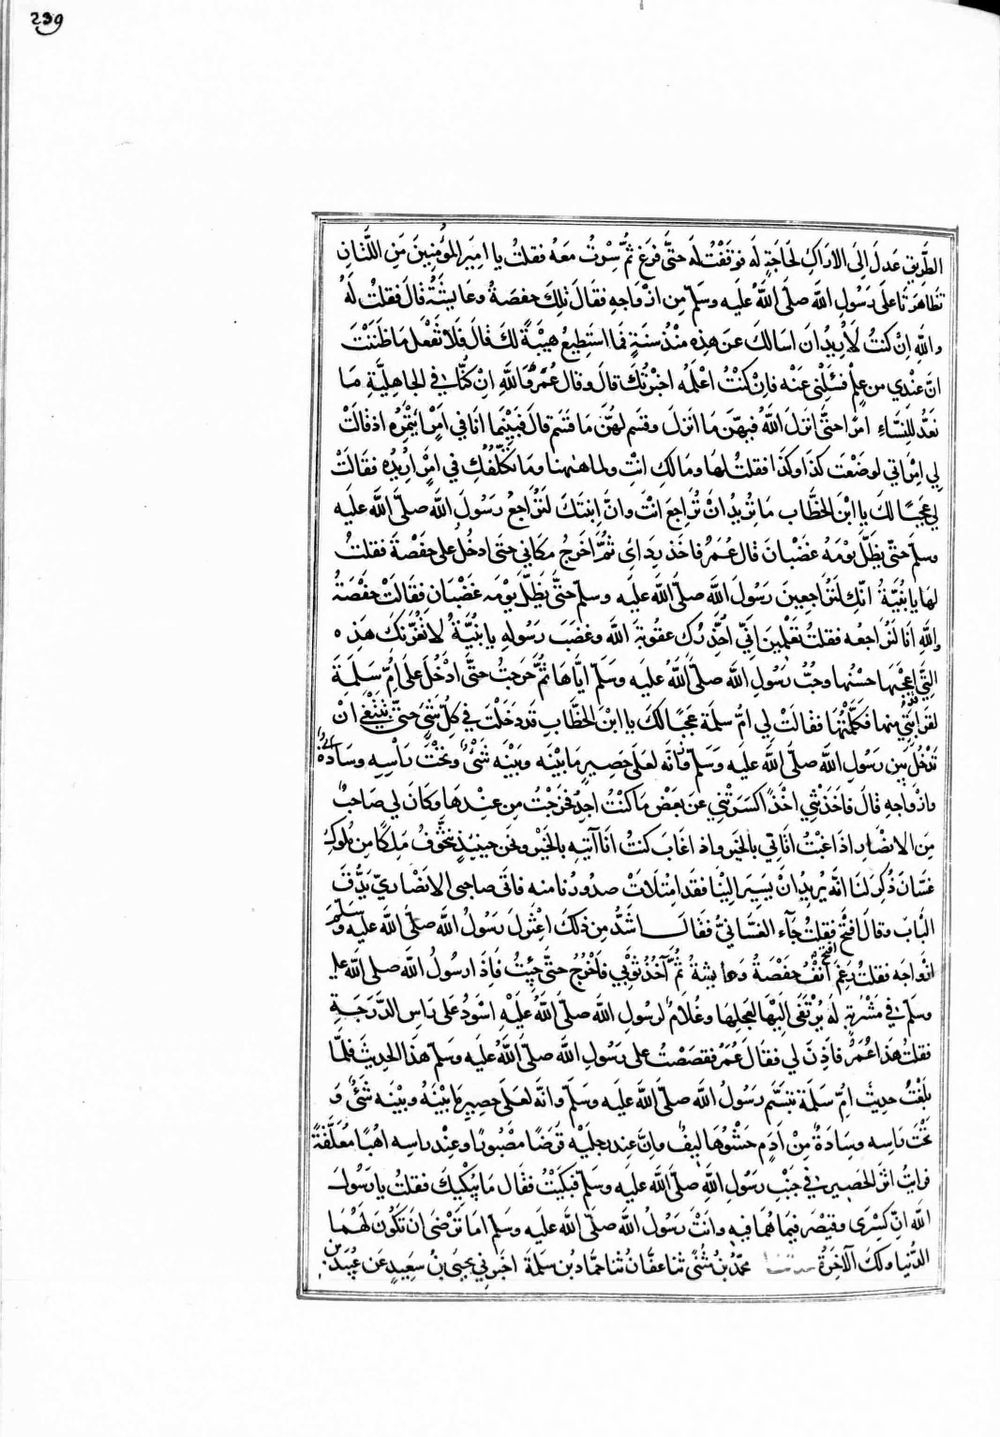 239
الطَّرِيقِ عَدَلَ اِلَى الاَرَاكِ لِحَاجَةٍ لَه فَوَقَفْتُ لَه حَتَّى فَرَغَ ثُمَّ سِرْتُ مَعَهُ فقلتُ يا اميرَ المُؤمِنِينَ مَنِ اللَّتَانِ
تَظَاهَرَتَا على رَسُولِ اللَّه صلّى اللَّهُ عليه وسلّم مِن ازْوَاجِهِ فقالَ تِلكَ حفصَةُ وعَايِشَةُ قالَ فقلتُ لَهُ
واللَّهِ اِنْ كنتُ لَأُرِيدُ ان اسالكَ عن هذِه مُنْذُ سنَةٍ فمَا استَطِيعُ هَيْبَةً لكَ قالَ فَلَا تَفْعَل مَا ظَنَنْتَ
انّ عندي من عِلْمٍ فسَلْنِي عَنْه فاِنْ كنتُ اعْلَمُه اخبرْتُكَ قالَ وقال عُمَرُ وَاللَّهِ اِنْ كُنَّا في الجاهِليَّةِ مَا
نَعُدُّ للنِّسَاءِ امرًا حتَّى انزلَ اللَّهُ فيهنّ ما انزلَ وقسَم لهُنّ مَا قَسَم قالَ فَبَيْنَما انَا في امْرٍ أَتَمِرُه اذ قالَتْ
لي امْرَاتي لوصَنَعْتَ كذَا وكذَا فقلتُ لها ومَا لكِ انْتِ ولما هٰهُنا ومَا تكلُّفُكِ في امْرٍ اُرِيدُه فقَالَتْ
لي عَجَبًا لكَ يا ابْنَ الخَطَّابِ مَا تُرِيدُ انْ تُرَاجَعَ انْتَ وانّ ابنَتَكَ لتُرَاجِعُ رَسُولَ اللَّه صلّى اللَّه عليه
وسلّم حتّى يظَلَّ يَوْمَهُ غَضْبَانَ قالَ عُمَرُ فآخذ رِدَاي ثمَّ اخرجُ مكاني حتى ادخُلَ على حَفْصَةَ فقلتُ
لها يا بُنَيَّةُ انّكِ لتُراجِعِينَ رَسُولَ اللَّه صلّى اللَّه عليه وسلم حتَّى يَظَلَّ يَوْمَه غَضْبَان فقالَتْ حفْصَةُ
واللَّهِ انَا لَنُراجعُه فقلتُ تعْلَمِينَ اَنِّي اُحَذِّرُكِ عقُوبَةَ اللَّه وغضَبَ رَسُولهِ يا بُنَيَّةُ لا تَغُرَّنَّكِ هَذِه
الّتي اعجبَهَا حسْنُهَا وحُبُّ رَسُولِ اللَّه صلّى اللَّهُ عليه وسَلّم ايَّاهَا ثُمَّ خَرجتُ حتَّى ادْخُلَ على اُمِّ سَلَمَةَ
لقرابَتي منها فكلَّمتُهَا فقالَتْ لي امُّ سلمَة عَجَبًا لكَ يا ابْنَ الخَطَّابِ قد دَخَلْتَ في كلِّ شَيءٍ حتَّى تَبْتَغِي انْ
تَدْخُلَ بَين رَسُولِ اللَّه صلّى اللَّه عليه وسَلّم وانّه لعلَى حَصِيرٍ مَا بَيْنَه وبَيْنَه شَيْءٌ وتحْتَ رَاسِه وسَادَةٌ
وازْوَاجِهِ قالَ فاخَذَتْنِي اخْذًا كسَرَتْنِي عَن بعَضِ مَا كنْتُ اجدُ فخرَجْتُ مِن عنْدِهَا وكَانَ لي صَاحبٌ
مِنَ الانصَارِ اذَا غبْتُ اتَاني بالخَبَرِ واذا غَابَ كنتُ انَا آتيهِ بالخَبَرِ ونحن حِينَئِذٍ نتخَوَّفُ مَلِكًا مِن مُلُوكِ
غسَّانَ ذُكِرَ لنَا انَّه يُرِيدُ انْ يَسِيرَ اِليْنَا فقَد امْتَلَاتْ صدُورُنَا منه فاتى صاحبى الانصَاريّ يَدُقُّ
البَابَ وقالَ افْتَحْ فقلتُ جَآءَ الغسَّانِيُّ فقَالَ اشَدُّ مِن ذلكَ اعْتزلَ رَسُولُ اللَّه صلّى اللَّه عليه وسلّم
ازْواجَه فقلتُ رَغِمَ اَنْفُ حفْصَةَ وعايشةَ ثُمَّ آخُذُ ثَوْبِي فاَخْرُجُ حتَّى جِيْتُ فَاِذَا رسُولُ اللَّه صلى اللَّه عليه
وسلّم في مَشْرُبَةٍ لَه يُرْتَقَى اِليْهَا بعجلِها وغُلامٌ لرسُولِ اللَّه صلّى اللَّهُ عليْهِ اسْوَدُ على رَاسِ الدَّرَجَةِ
فقلتُ هَذَا عُمَرُ فاَذِنَ لي فقالَ عُمَرُ فقصَصْتُ على رَسُولِ اللَّه صلّى اللَّهُ عليه وسَلّم هَذَا الحدِيثَ فلمّا
بلَغْتُ حدِيثَ امِّ سَلَمَةَ تبَسَّم رَسُولُ اللَّه صلّى اللَّه عليه وسَلّم وانّه لعَلَى حصِيرٍ مَا بيْنَهُ وبيْنَه شَيْءٌ وَ
تحْتَ رَاسِه وسَادَةٌ مِنْ اَدَمٍ حَشْوُهَا لِيفٌ وانّ عِند رِجلَيْه قَرَظًا مَصْبُورًا وعنْد رَاسِه اهبًا مُعَلَّقَةً
فرايتُ اثرَ الحَصِيرِ في جَنْبِ رَسُولِ اللَّه صلّى اللَّه عليه وسَلّم فبكَيْتُ فقَال مَا يُبْكيكَ فقلتُ يا رَسُولَ
اللَّه انّ كِسْرَى وقيْصَرَ فيمَا هُمَا فِيه وانْتَ رَسُولُ اللَّه صلّى اللَّه عليه وسلّم امَا تَرْضَى انْ تكُونَ لَهُمَا
الدُّنيا ولكَ الآخِرَةُ حدثنا محمّدُ بن مُثَنًّى ثنا عفَّانُ ثنا حمّادُ بن سَلمَةَ اخبَرني يحيَى بنُ سَعِيدٍ عَن عُبَيْدِ بن